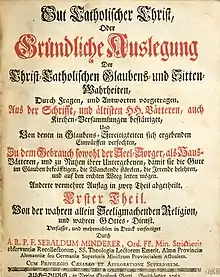 Gut Catholischer Christ,
Oder
Gründliche Auslegung
Der
Christ-Catholischen Glaubens- und Sitten-
Wahrheiten,
Durch Fragen, und Antworten vorgetragen,
Aus der Schrifft, und ältisten HH. Vätteren, auch
Kirchen-Versammlungen bestättiget,
Und
Von denen in Glaubens-Streitigkeiten sich ergebenden
Einwürffen verfochten,
Zu dem Gebrauch sowohl der Seel-Sorger, als Haus-
Vätteren, und zu Nutzen ihrer Untergebenen, damit sie die Gute
im Glauben bekräftigen, die Wanckende stärcken, die Irrende belehren,
und auf den rechten Weeg leiten mögen.
Anderte vermehrte Auflag in zwey Theil abgetheilt.
Erster Theil.
Von der wahren allein Seeligmachenden Religion,
und wahren GOttes-Dienst.
Verfasset, und mehrmahlen in Druck verfertiget
A
R. P. F. SEBALDUM MINDERER, Ord. FF. Min. Strictioris
Observantiæ Recollectorum, SS. Theologiæ Lectorem Emerit. Almæ Provinciæ
Alemaniæ seu Germaniæ Superioris Ministrum Provincialem Actualem.
CUM PRIVILEGIO CÆSAREO, ET FACULTATE SUPERIORUM.